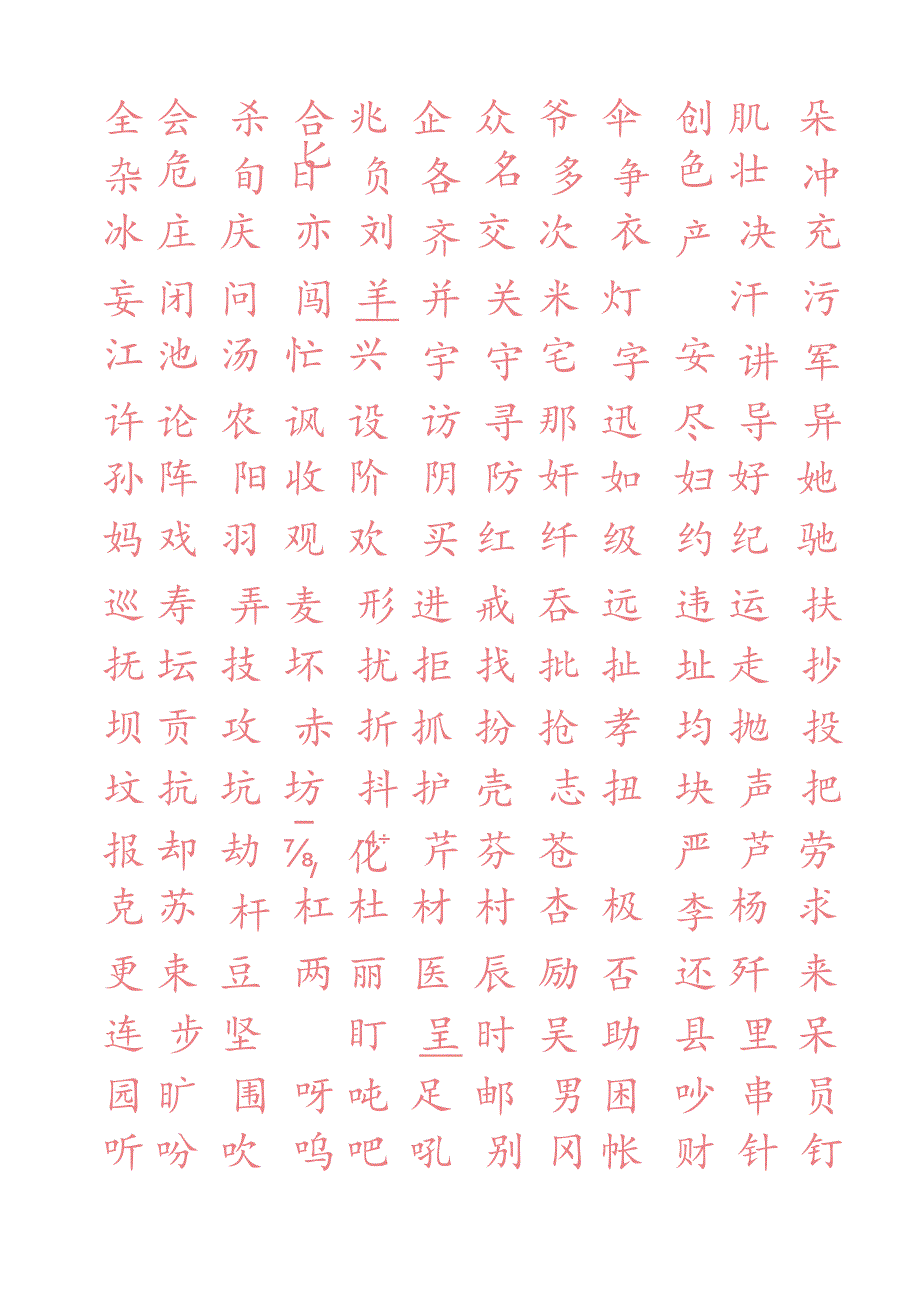 全会杀合兆企众爷伞创肌朵
杂危旬旨负各名多争色壮冲
冰庄庆亦刘齐交次衣产决充
妄闭问闯羊并关米灯汗污
江池汤忙兴宇守宅字安讲军
许论农讽设访寻那迅尽导异
孙阵阳收阶阴防奸如妇好她
妈戏羽观欢买红纤级约纪驰
巡寿弄麦形进戒吞远违运扶
抚坛技坏扰拒找批扯址走抄
坝贡攻赤折抓扮抢孝均抛投
坟抗坑坊抖护壳志扭块声把
报却劫芹芬苍严芦劳
克苏杆杠杜材村杏极李杨求
更束豆两丽医辰励否还歼来
连步坚盯呈时吴助县里呆
园旷围呀吨足邮男困吵串员
听吩吹呜吧吼别冈帐财针钉